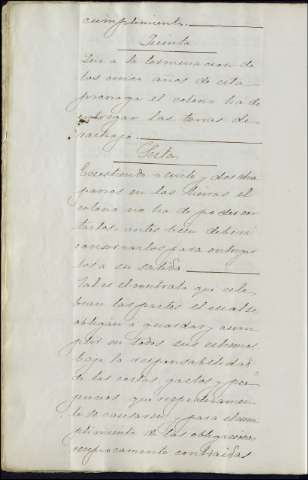 cumplimiento.
Quinta
Que a la terminacion de
los cinco años de esta
prorroga el colono ha de
entregar las tierras de
rastrojo.
Sexta
Existiendo a suelo y dos cha
parros en las tierras el
colono no ha de poder cor
tarlos antes bien deberá
conservarlos para entregar
los a su salida
Tal es el contrato que cele
bran las partes el cual se
obligan a guardar y cum
plir en todos sus estremos
bajo la responsabilidad
de las costas, gastos y per
juicios que respectivamen
te se causaren y para el cum
plimiento de las obligaciones
reciprocamente contraidas